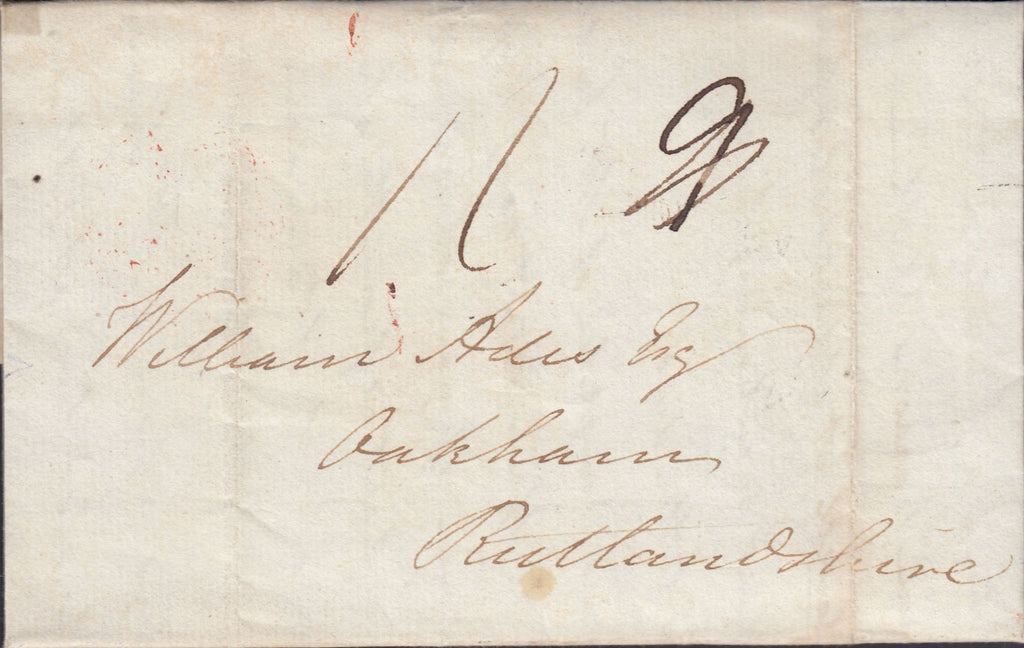 11
William Adis Esq
Oakham
Rutlandshire